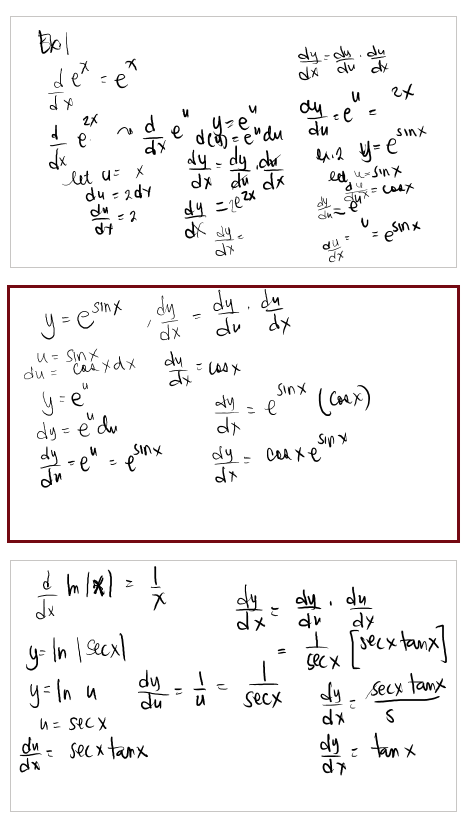 d/dx e^x = e^x
d/dx e^2x ~ d/dx e^u
let u = x
du = 2dx
du/dx = 2
y = e^u
d(y) = e^u du
dy/dx = dy/du · du/dx
dy/dx = 2e^2x
dy/dx =
dy/dx = dy/du · du/dx
dy/du = e^u = 2x
ex.2 y = e^sinx
let u = sinx
du/dx = cosx
dy/du = e^u = e^sinx
du/dx =
y = e^sinx , dy/dx = dy/du · du/dx
u = sinx
du = cosxdx
dy/dx = cosx
y = e^u
dy = e^u du
dy/du = e^u = e^sinx
dy/dx = e^sinx (cosx)
dy/dx = cosx e^sinx
d/dx ln|x| = 1/x
y = ln|secx|
y = ln u
dy/du = 1/u = 1/secx
u = secx
du/dx = secxtanx
dy/dx = dy/du · du/dx
= 1/secx [secxtanx]
dy/dx = secxtanx/s
dy/dx = tanx